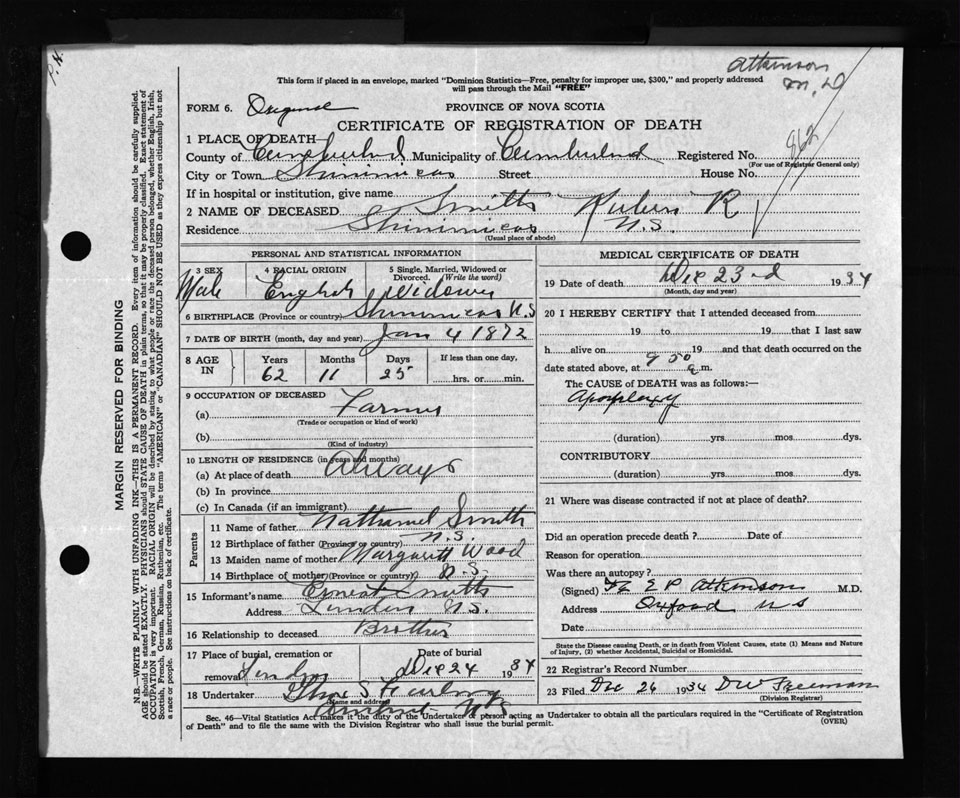 P. H.
Atkinson
M.D
This form if placed in an envelope, marked "Dominion Statistics—Free, penalty for improper use, $300," and properly addressed
will pass through the Mail "FREE"
FORM 6. Original PROVINCE OF NOVA SCOTIA
CERTIFICATE OF REGISTRATION OF DEATH
1 PLACE OF DEATH
County of Cumberland Municipality of Cumberland Registered No. 862
(For use of Registrar General only)
City or Town Shinimicas Street House No.
If in hospital or institution, give name
2 NAME OF DECEASED Smith Ruben R
Residence Shinimicas N.S.
(Usual place of abode)
PERSONAL AND STATISTICAL INFORMATION
3 SEX 4 RACIAL ORIGIN 5 Single, Married, Widowed or Divorced. (Write the word)
Male English Widower
6 BIRTHPLACE (Province or country) Shinimicas N.S
7 DATE OF BIRTH (month, day and year) Jan 4 1872
8 AGE IN Years Months Days If less than one day,
62 11 25 hrs. or min.
9 OCCUPATION OF DECEASED
(a) Farmer
(Trade or occupation or kind of work)
(b)
(Kind of industry)
10 LENGTH OF RESIDENCE (in years and months)
(a) At place of death Always
(b) In province
(c) In Canada (if an immigrant)
Parents
11 Name of father Nathaniel Smith
12 Birthplace of father (Province or country) N.S.
13 Maiden name of mother Margarett Wood
14 Birthplace of mother (Province or country) N.S.
15 Informant's name Ernest Smith
Address Linden N.S.
16 Relationship to deceased Brother
17 Place of burial, cremation or removal Linden Date of burial Dec 24 1934
18 Undertaker S Furlong
(Name and address)
Amherst N.S
MEDICAL CERTIFICATE OF DEATH
19 Date of death Dec 23rd 1934
(Month, day and year)
20 I HEREBY CERTIFY that I attended deceased from
19 to 19 that I last saw
h alive on 19 and that death occurred on the
date stated above, at 9 50 m.
The CAUSE OF DEATH was as follows:—
Apoplexy
(duration) yrs. mos. dys.
CONTRIBUTORY
(duration) yrs. mos. dys.
21 Where was disease contracted if not at place of death?
Did an operation precede death? Date of
Reason for operation
Was there an autopsy?
(Signed) E P Atkinson M.D.
Address Oxford N S
Date
State the Disease causing Death, or in death from Violent Causes, state (1) Means and Nature
of Injury, (2) whether Accidental, Suicidal or Homicidal.
22 Registrar's Record Number
23 Filed Dec 26 1934 D W Freeman
(Division Registrar)
Sec. 46—Vital Statistics Act makes it the duty of the Undertaker or person acting as Undertaker to obtain all the particulars required in the "Certificate of Registration
of Death" and to file the same with the Division Registrar who shall issue the burial permit. (OVER)
MARGIN RESERVED FOR BINDING
N.B.—WRITE PLAINLY WITH UNFADING INK—THIS IS A PERMANENT RECORD. Every item of information should be carefully supplied.
AGE should be stated EXACTLY. PHYSICIANS should STATE CAUSE OF DEATH in plain terms, so that it may be properly classified. Exact statement of
OCCUPATION is very important. RACIAL ORIGIN will be described by stating to what people or race the deceased person belonged, whether English, Irish,
Scottish, French, German, Russian, Ruthenian, etc. The terms "AMERICAN" or "CANADIAN" SHOULD NOT BE USED as they express citizenship but not
a race or people. See instructions on back of certificate.